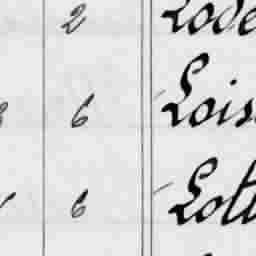 2 Lode
6 Lois
6 Lott